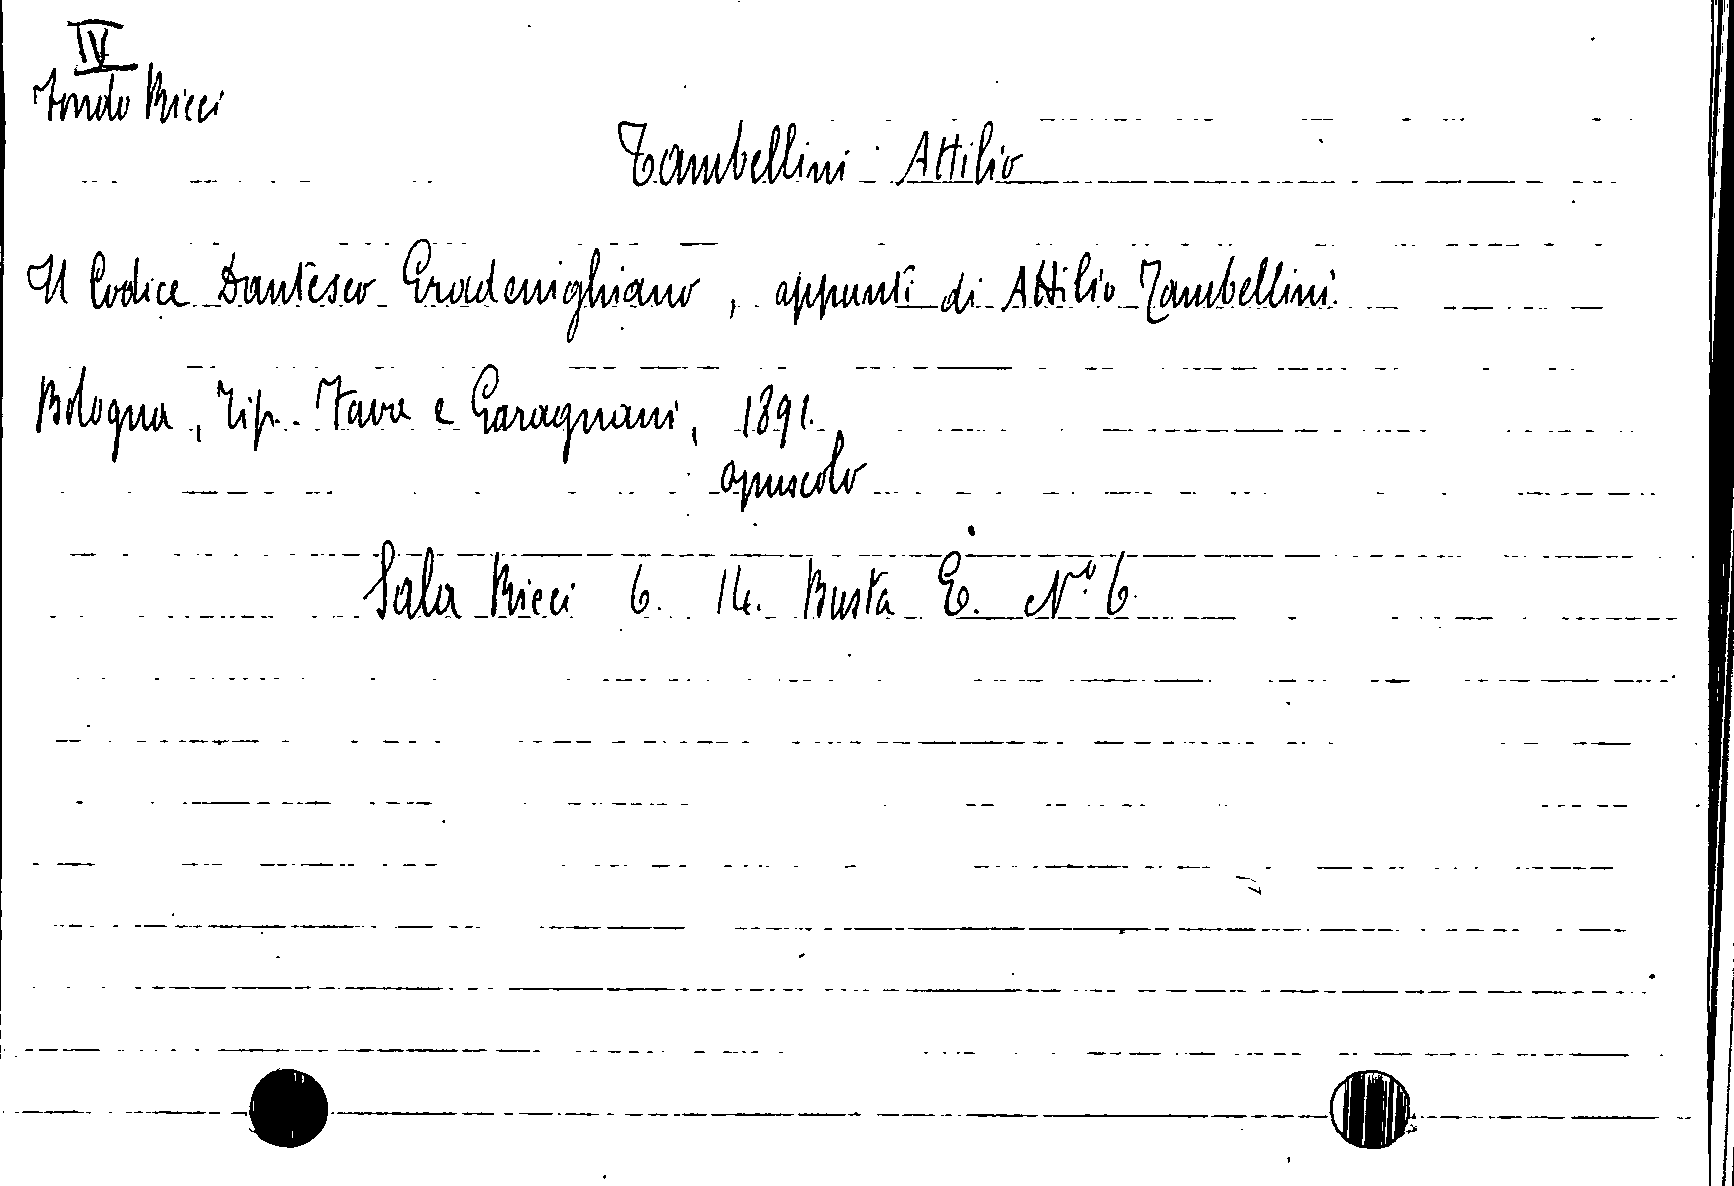 IV
Fondo Ricci
Tambellini Attilio
Il Codice Dantesco Gradenighiano, appunti di Attilio Tambellini.
Bologna, Tip. Fava e Garagnani, 1891.
opuscolo
Sala Ricci 6. 14. Busta E. N.º 6.